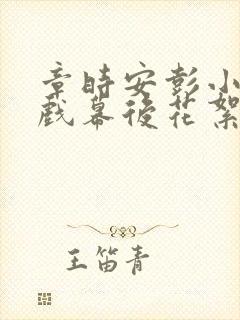 章時安彭小
戲幕後花絮
王笛青